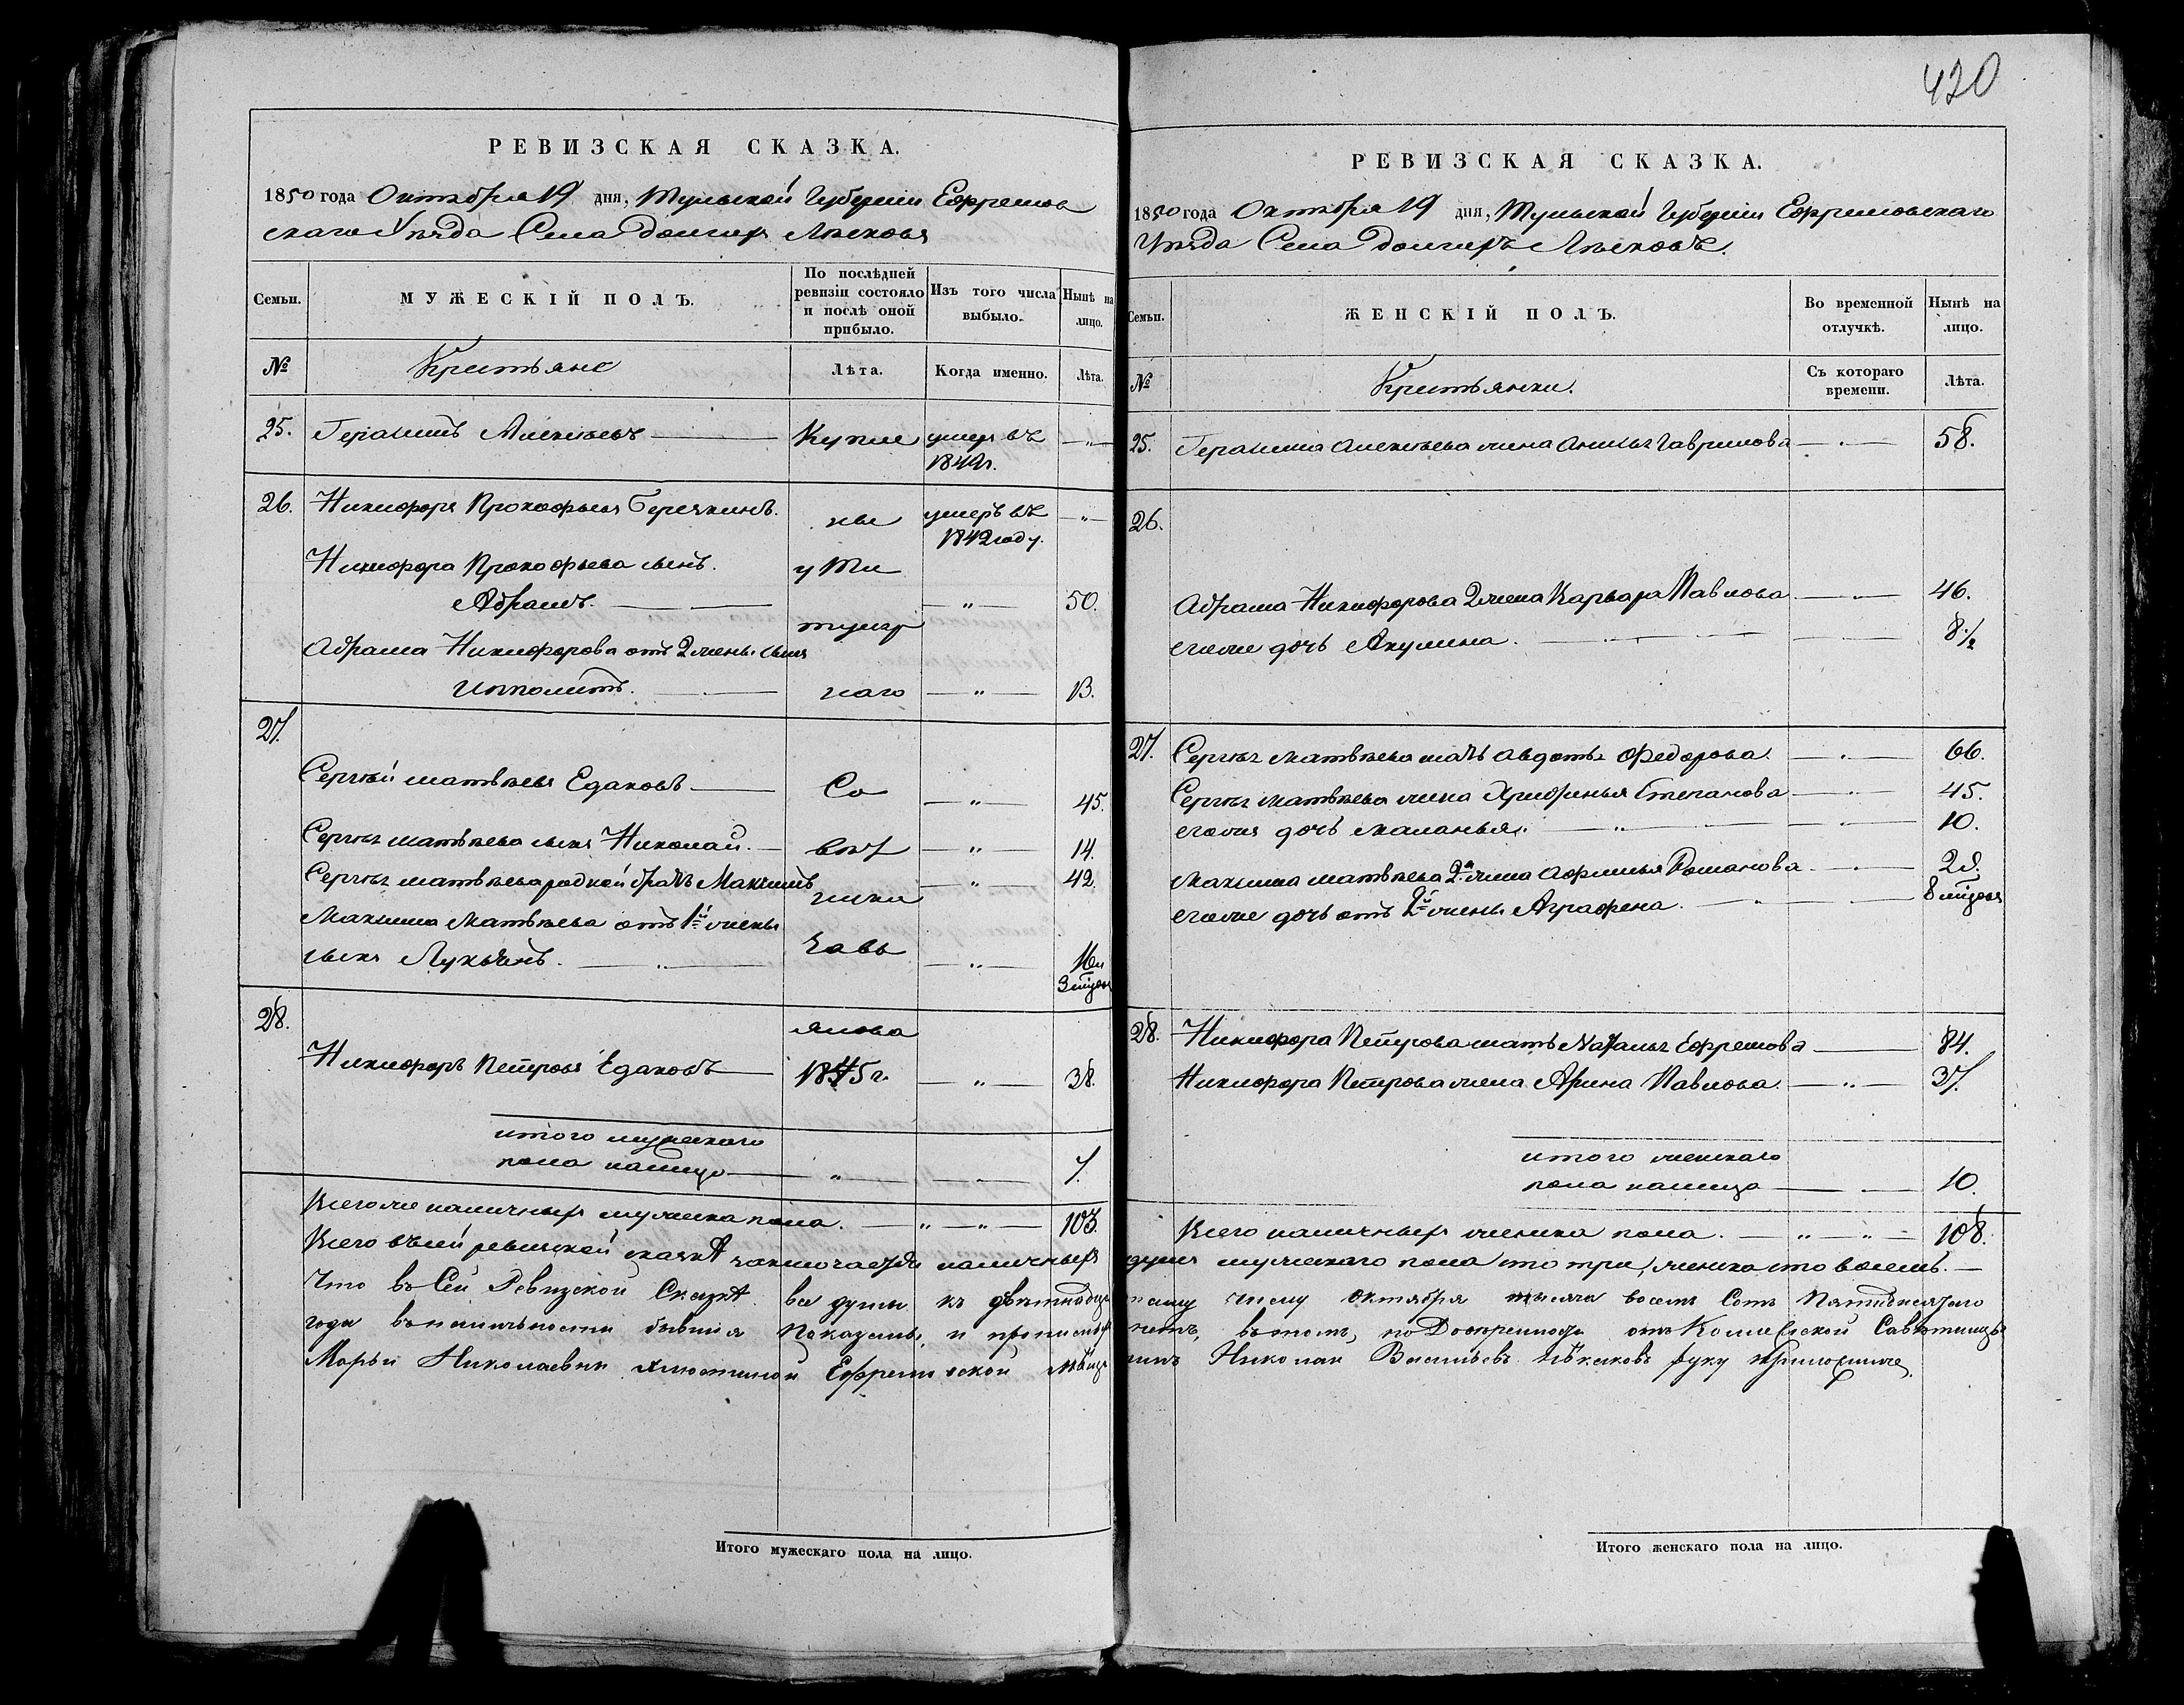 420
РЕВИЗСКАЯ СКАЗКА.
1850 года Октября 19 дня, Тульской Губернiи Ефремов
скаго Уѣзда Села Долгихъ Лѣсковъ
Семьи. МУЖЕСКIЙ ПОЛЪ. По послѣдней ревизiи состояло и послѣ оной прибыло. Изъ того числа выбыло. Нынѣ на лицо.
№ Крестьяне Лѣта. Когда именно. Лѣта.
25. Герасимъ Алексѣевъ Купле умеръ въ 1849г. "
26. Никифоръ Прокофьевъ ны умеръ въ 1842 году. "
Никифора Прокофьева сынъ.
Абрамъ. " 50.
Абрама Никифорова отъ 2 жены сынъ
Ипполитъ. наго " 13.
27.
Сергѣй Матвѣевъ Едаковъ Со " 45.
Сергѣя Матвѣева сынъ Николай. " 14.
Сергѣя Матвѣева родной братъ Максимъ " 42.
Максима Матвѣева отъ 1й жены
сынъ Лукьянъ. " 16и
28.
Никифоръ Петровъ Едаковъ 1845г. " 38.
итого мужескаго
пола налицо " " 7.
Всего же наличныхъ мужеска пола. " " 103.
РЕВИЗСКАЯ СКАЗКА.
1850 года Октября 19 дня, Тульской Губернiи Ефремовскаго
Уѣзда Села Долгихъ Лѣсковъ.
Семьи. ЖЕНСКIЙ ПОЛЪ. Во временной отлучкѣ. Нынѣ на лицо.
№ Крестьянки. Съ котораго времени. Лѣта.
25. Герасима Алексѣева жена Анисья Гаврилова " 58.
26.
Абрама Никифорова 2 жена Варвара Павлова " 46.
его же дочь Акулина. " 8 1/2
27. Сергѣя Матвѣева мать Авдотья Федорова. " 66.
Сергѣя Матвѣева жена Хрисфинья Степанова " 45.
его же дочь Маланья. " 10.
Максима Матвѣева 2я жена Афимья Романова " 28.
его же дочь отъ 2й жены Аграфена. "
28. Никифора Петрова мать Наталья Ефремова 84.
Никифора Петрова жена Арина Павлова. " 37.
итого женскаго
пола налицо 10.
Всего наличныхъ женска пола. " " 108.
Всего въ сей ревизской сказкѣ заключается наличныхъ душъ мужескаго пола сто три, женска сто восемь.
Что въ Сей Ревизской Сказкѣ все души къ числу Октября тысяча восемь Сотъ Пятидесятаго
года въ наличности бывшiя показаны, и въ томъ, по Довѣренности отъ
Марьи Николаевны Ефремовской Николай Васильевъ руку приложилъ.
Итого мужескаго пола на лицо.
Итого женскаго пола на лицо.